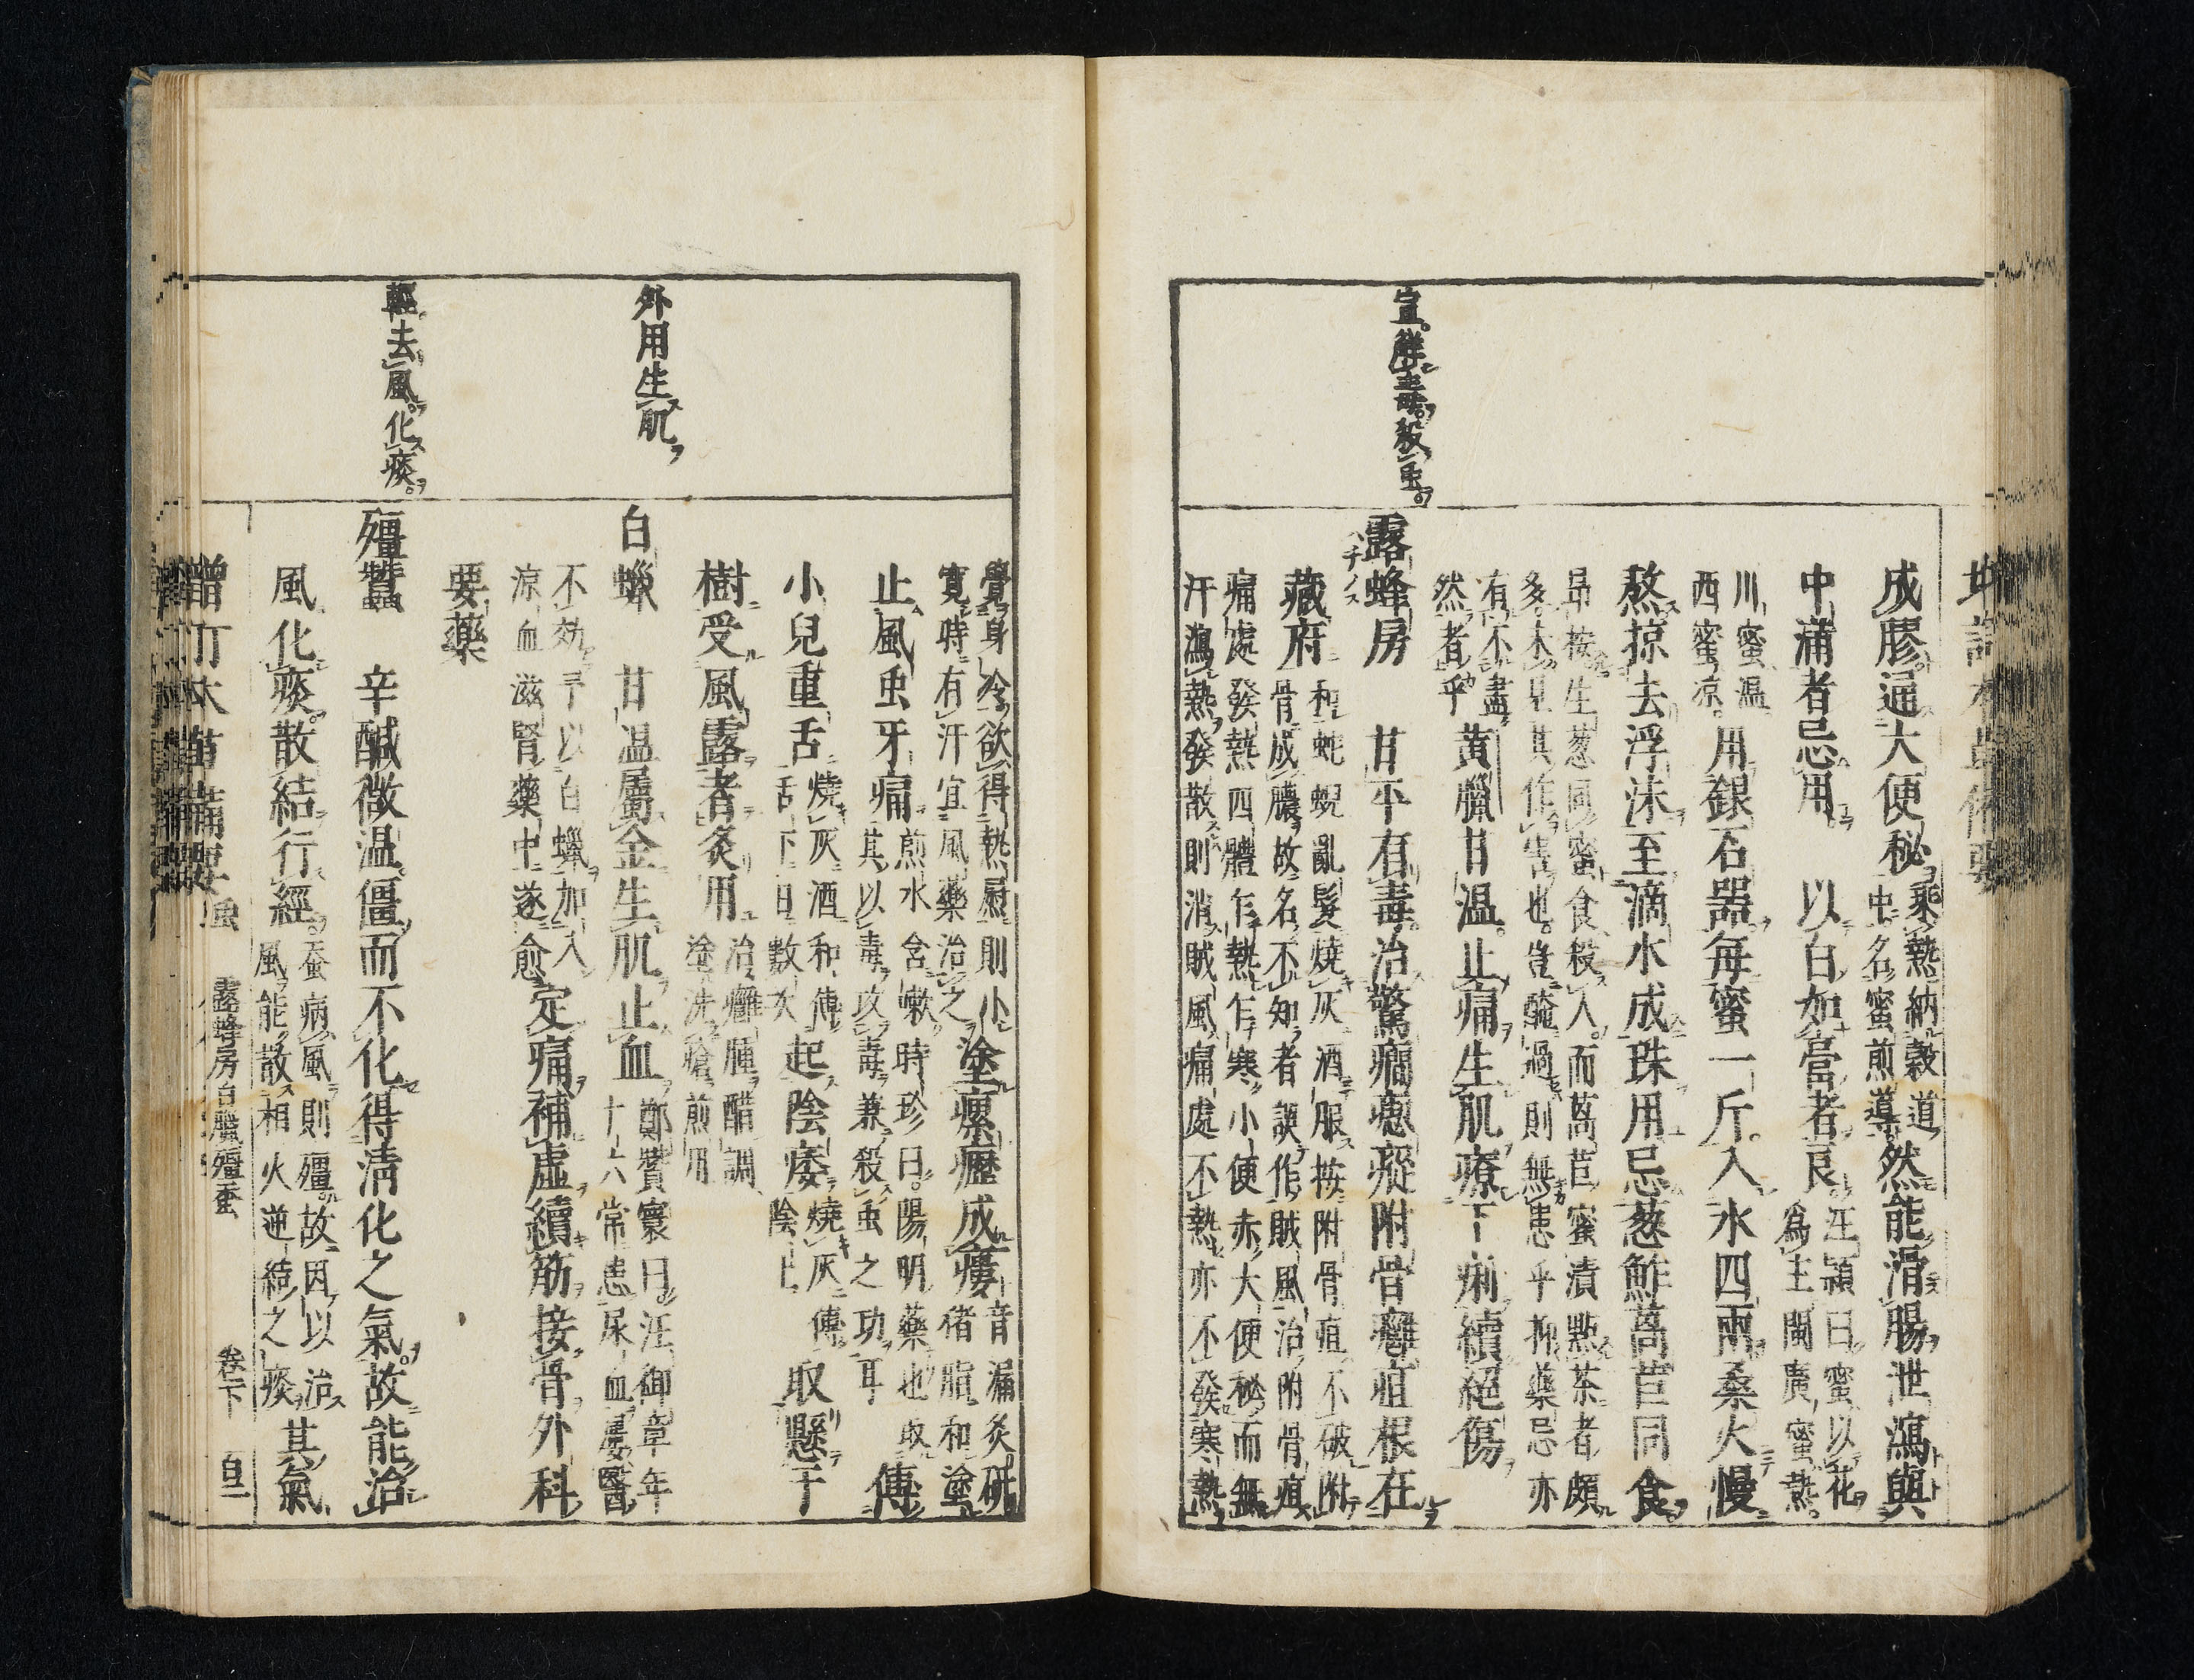 宣。解毒。殺虫。
成膠。通大便秘
乘熱納穀道
中。名蜜煎導。
然能滑腸泄瀉與
中滿者忌用
以白如膏者良。
汪穎曰蜜以花
爲主閩廣蜜熱。
川蜜温
西蜜涼。
用銀石器每蜜一斤。入水四兩。桑火慢
熬掠去浮沫至滴水成珠用忌葱鮓萵苣同食。
昂按生葱同蜜食殺人。而萵苣蜜漬點茶者頗
多。未見其作害也。豈醃過則無患乎抑藥忌亦
有不盡
然者乎
黄臘甘温。止痛生肌療下痢續絕傷
露蜂房
甘平有毒。治驚癇瘛瘲附骨癰疽根在
藏府
和蛇蛻亂髮燒灰酒服按附骨疽不破附
骨成膿故名不知者誤作賊風治附骨疽
痛處發熱四體乍熱乍寒小便赤大便秘而無
汗瀉熱發散則消賊風痛處不熱亦不發寒熱
外用生肌
輕。去風。化痰。
覺身冷欲得熱熨則小
寬時有汗宜風藥治之
塗瘰癧成瘻
音漏炙研
猪脂和塗
止風虫牙痛
煎水含嗽時珍曰。陽明藥也取
其以毒攻毒兼殺虫之功耳
傅
小兒重舌
燒灰酒和傅
舌下日數次
起陰痿
燒灰傅
陰上
取懸于
樹受風露者炙用
治癰腫醋調
塗洗瘡煎用
白蠟
甘温屬金生肌止血
鄭贊寰曰。汪御章年
十六常患尿血屢醫
不効予以白蠟加入
涼血滋腎藥中遂愈
定痛補虛續筋接骨外科
要藥
殭蠶
辛醎微温。僵而不化得清化之氣。故能治
風化痰。散結行經。
蚕病風則殭。故因以治
風能散相火逆結之痰
其氣
增訂本草備要
虫
露蜂房白臘殭蚕
卷下